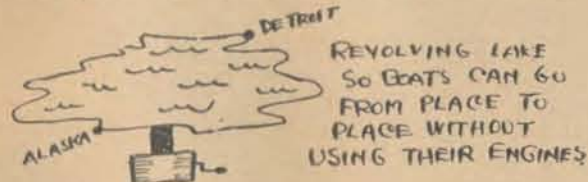 DETROIT
REVOLVING LAKE
SO BOATS CAN GO
FROM PLACE TO
PLACE WITHOUT
USING THEIR ENGINES
ALASKA